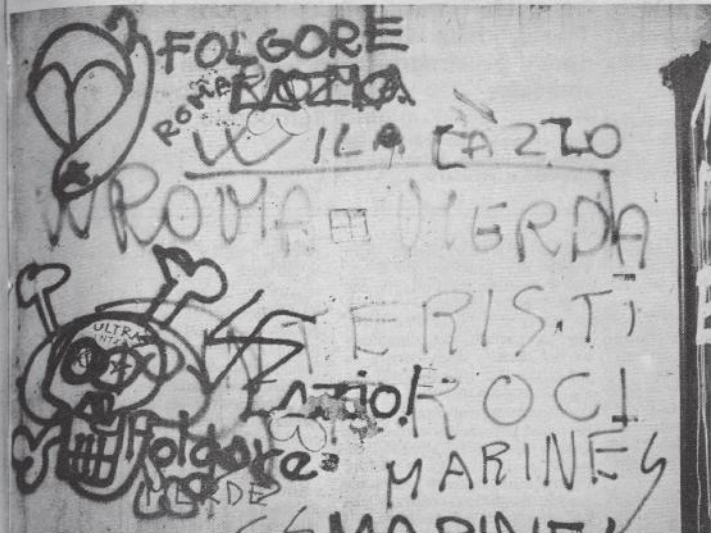 FOLGORE
ROMA
W IL CAZZO
W ROMA MERDA
ULTRAS
INTERISTI
Lazio!
ROCI
Folgore
MARINES
MERDE
MARINES